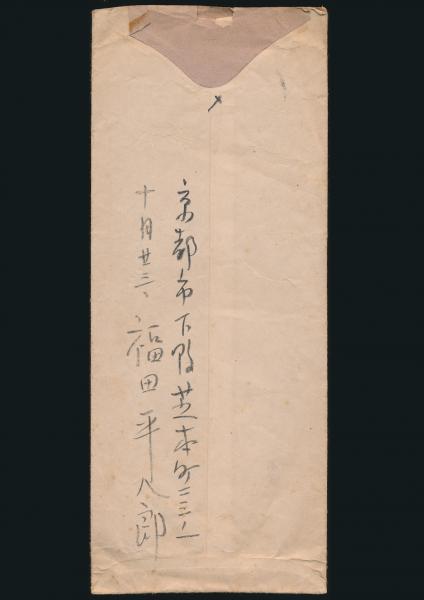 京都市下鴨芝本町三三ノ一
十月廿三、福田平八郎